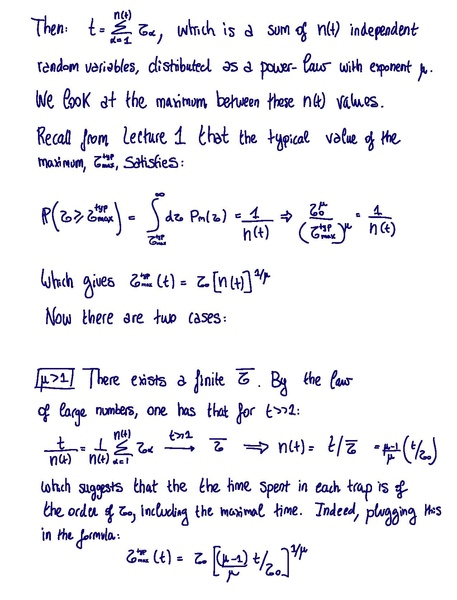 Then: t = Σ_{α=1}^{n(t)} τ_α, which is a sum of n(t) independent
random variables, distributed as a power-law with exponent μ.
We look at the maximum between these n(t) values.
Recall from Lecture 1 that the typical value of the
maximum, τ_max^typ, satisfies:
P(τ ⩾ τ_max^typ) = ∫_{τ_max^typ}^∞ dτ P_μ(τ) = 1/n(t) ⇒ τ_0^μ/(τ_max^typ)^μ = 1/n(t)
Which gives τ_max^typ(t) = τ_0 [n(t)]^{1/μ}
Now there are two cases:
μ>1 There exists a finite τ̄. By the law
of large numbers, one has that for t>>1:
t/n(t) = 1/n(t) Σ_{α=1}^{n(t)} τ_α →^{t>>1} τ̄ ⟹ n(t) = t/τ̄ = (μ-1)/μ (t/τ_0)
which suggests that the the time spent in each trap is of
the order of τ_0, including the maximal time. Indeed, plugging this
in the formula:
τ_max^typ(t) = τ_0 [(μ-1)/μ t/τ_0]^{1/μ}